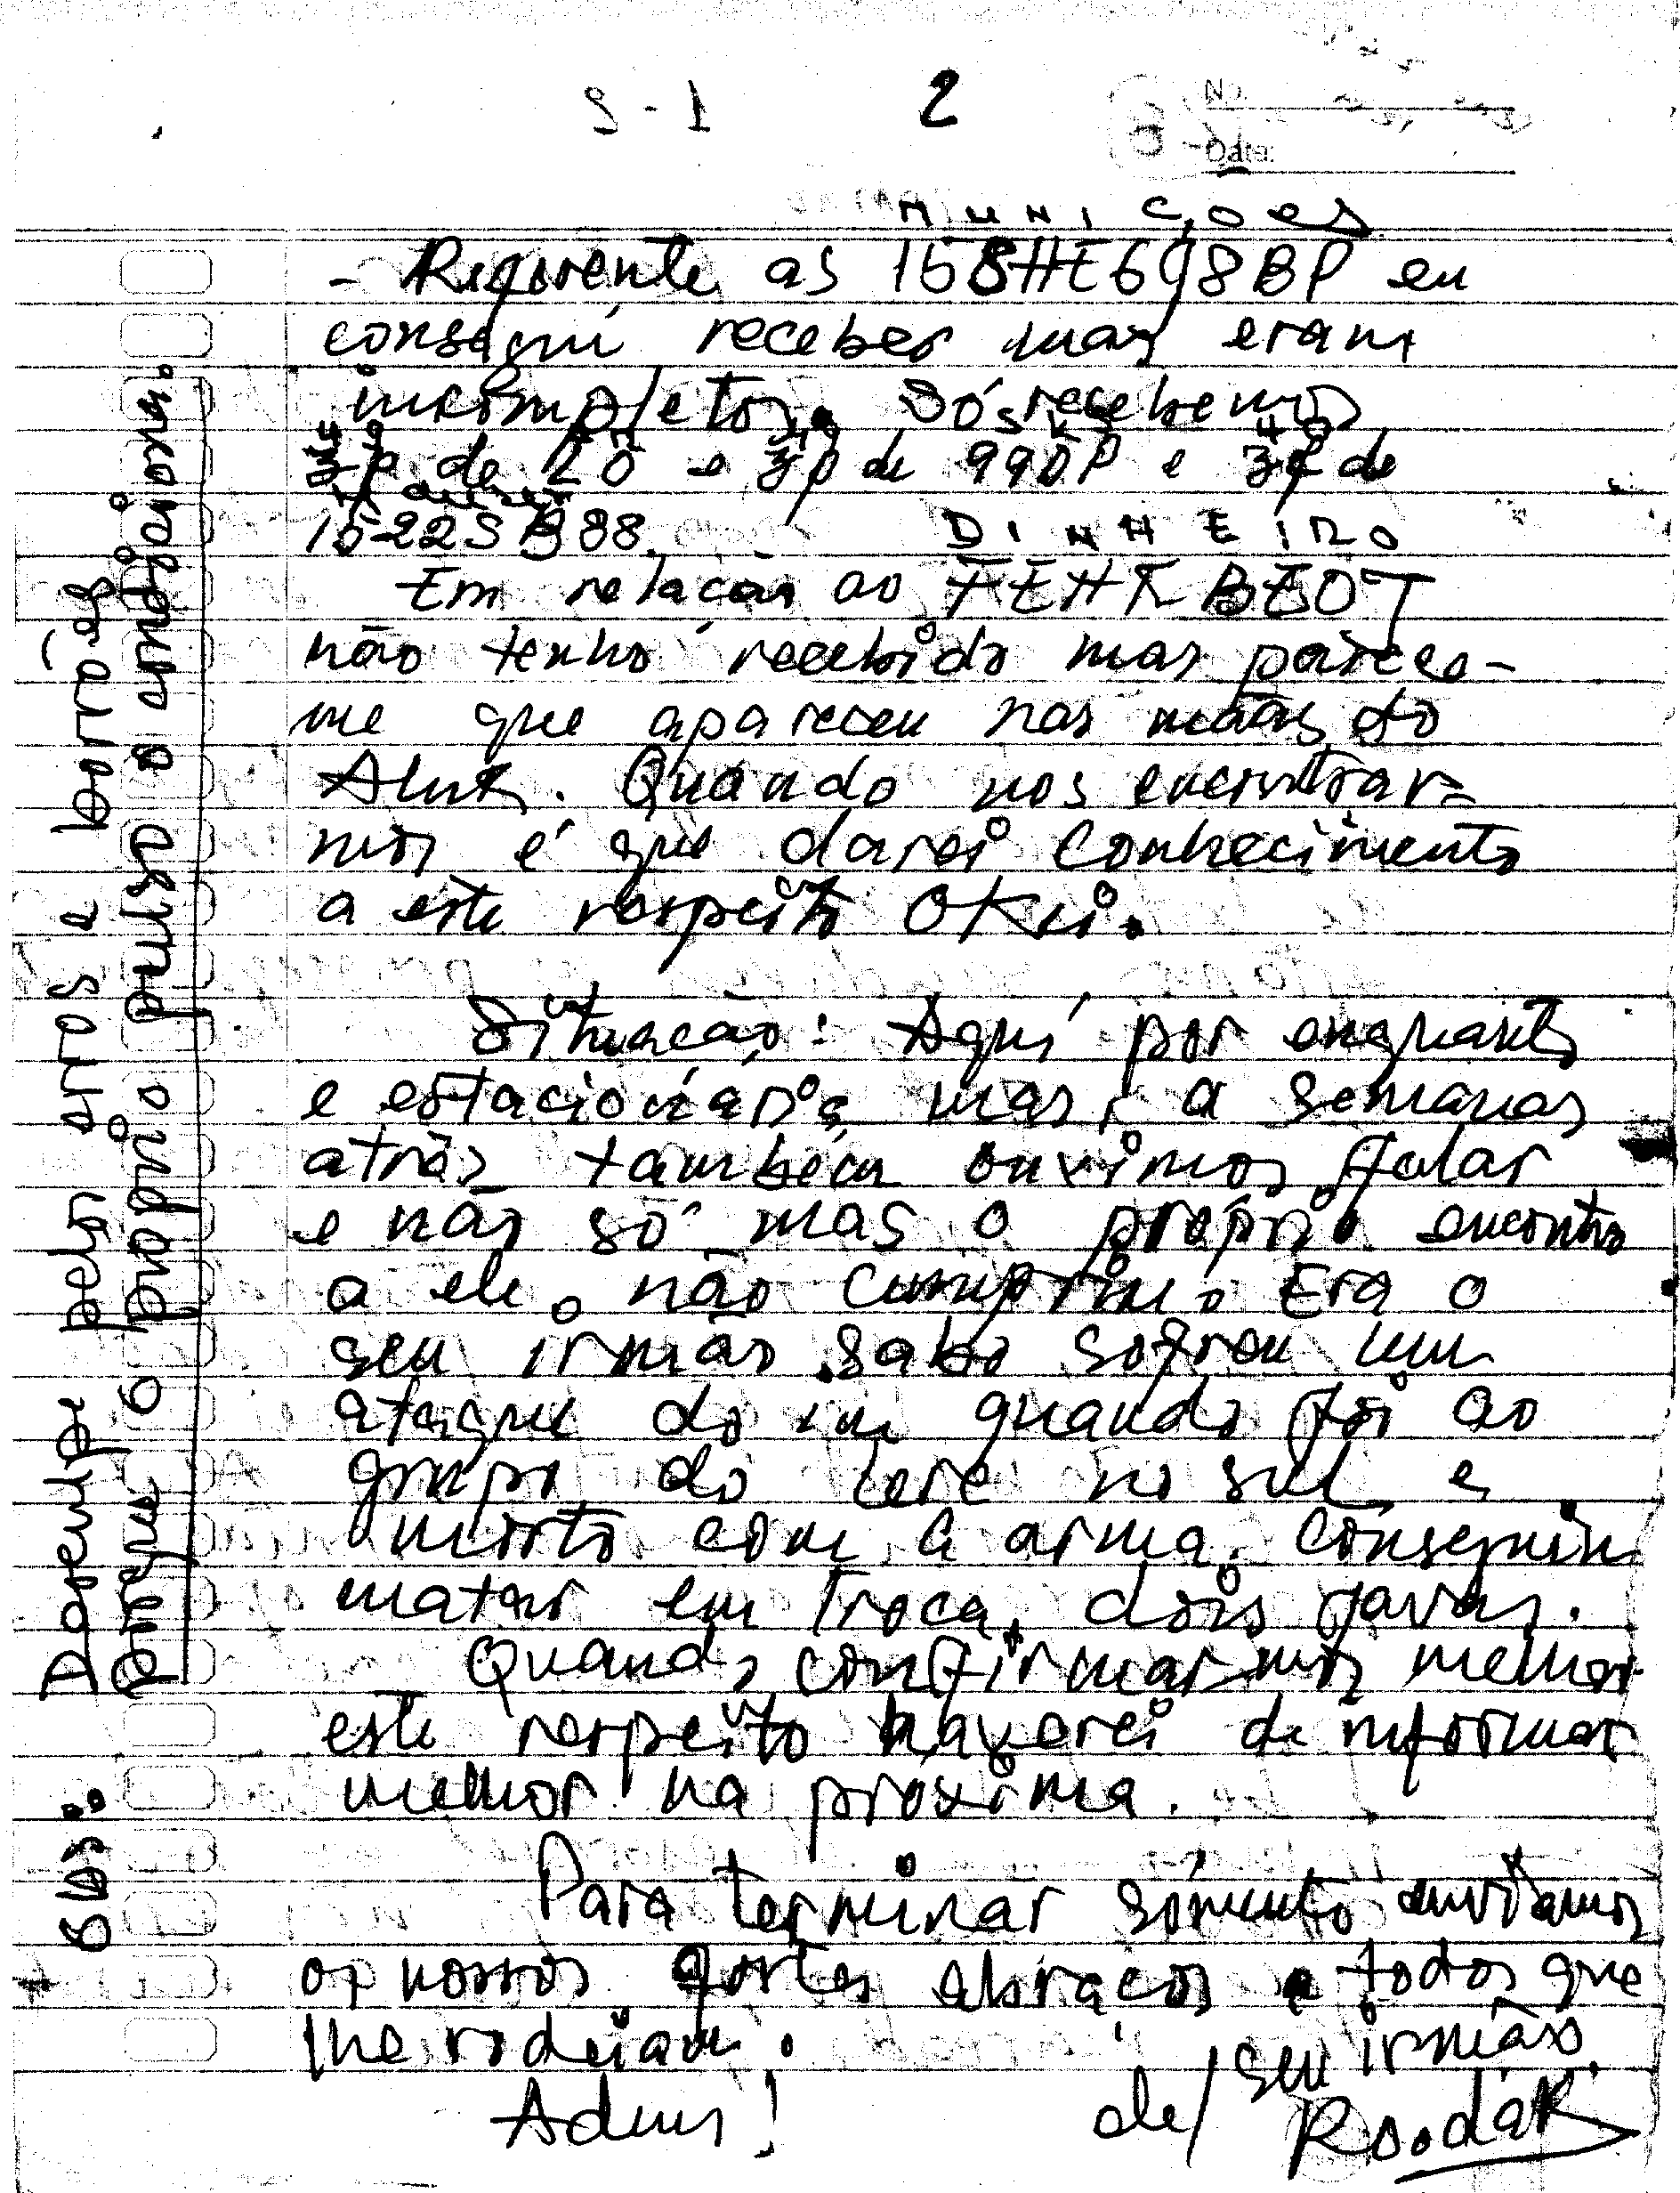 S-1 2
No.
Data:
MUNIÇOES
- Referente as 158HE698BP eu
consegui receber mas eram
incompletos. Só recebemos
3p de 20 e 3p de 990P e 3p de
15-22SB88.
DINHEIRO
Em relação ao
não tenho recebido mas parece-
me que apareceu nas mãos do
Aluk. Quando nos encontrar-
mos é que darei conhecimento
a este respeito OKei.
Situação: Aqui por enquanto
e estacionária, mas, a semanas
atrás também ouvimos falar
e não só mas o próprio encontro
a ele, não cumpriu. Era o
seu irmão sabo sofreu um
ataque do ini quando foi ao
grupo do Lere no sul e
morto com a arma. Conseguiu
matar em troca, dois javas.
Quando confirmarmos melhor
este respeito haverei de informar
melhor na próxima.
Para terminar sómente enviamos
os nossos fortes abraços e todos que
lhe rodeiam.
Adeus! de/ seu irmão.
Roodak
Obs: Desculpe pelos erros e borrões
porque o próprio pulso o ameaciona.